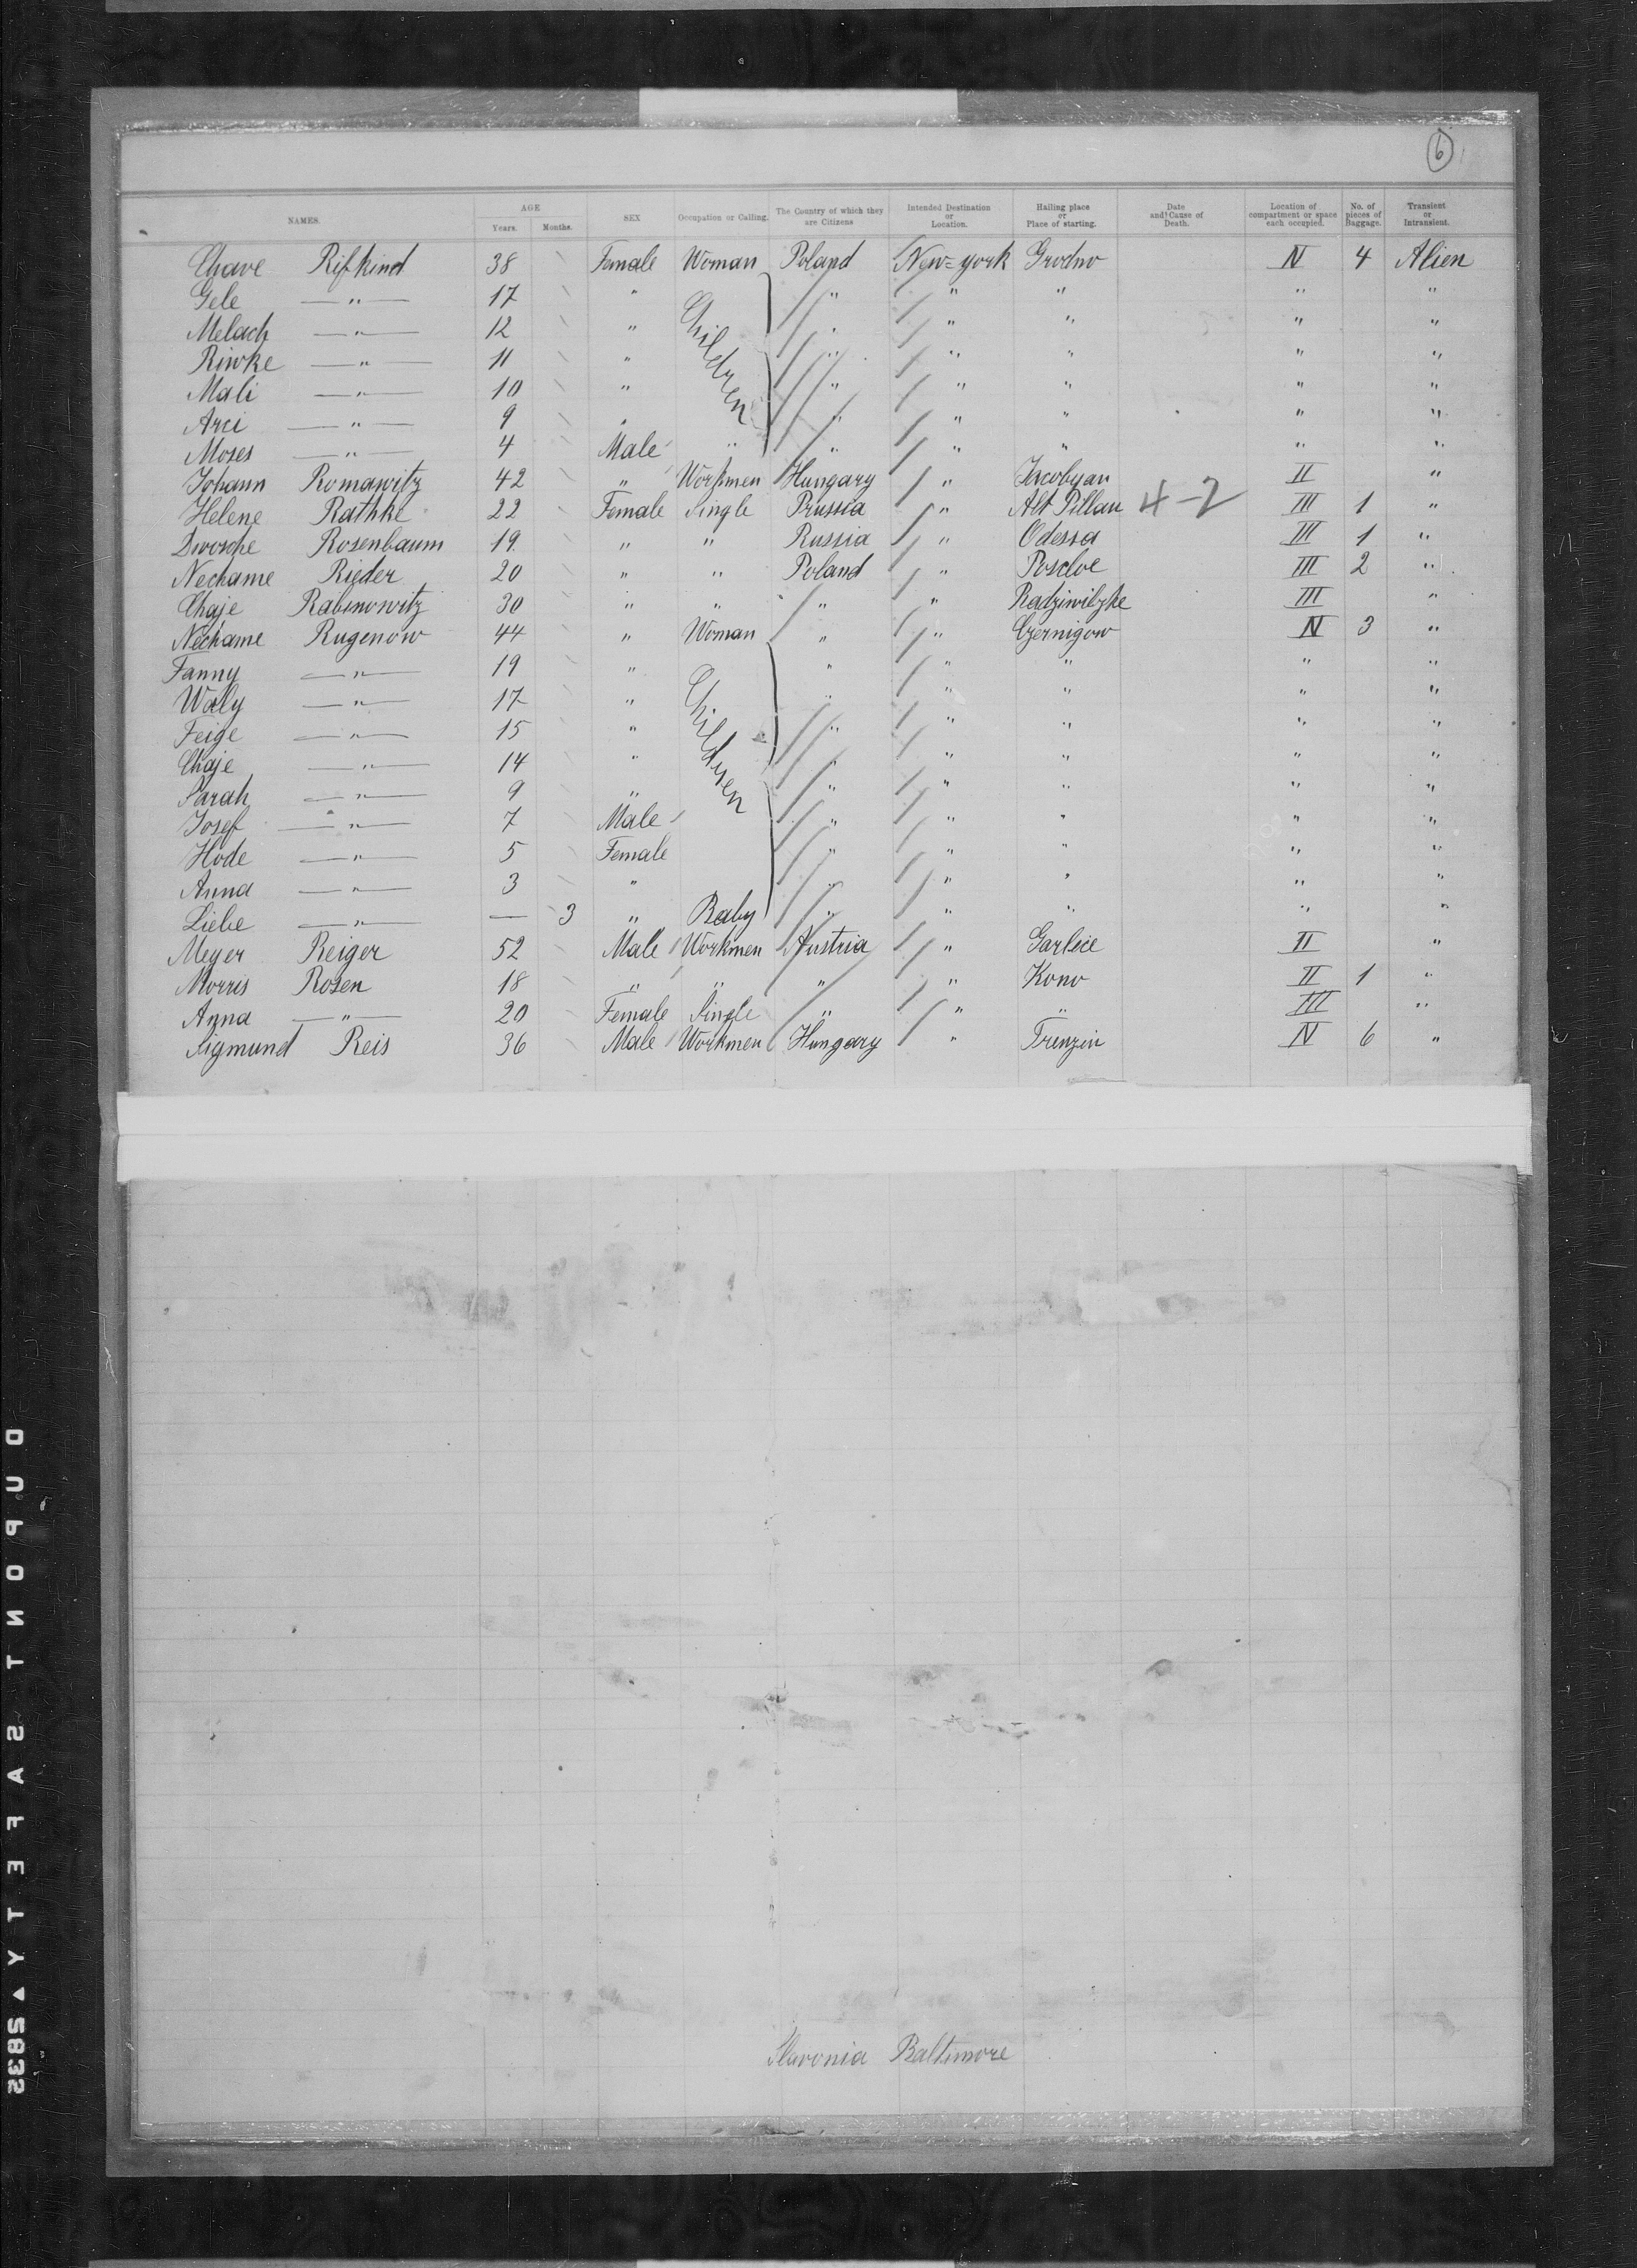 6
NAMES. AGE Years. Months. SEX Occupation or Calling. The Country of which they are Citizens Intended Destination or Location. Hailing place or Place of starting. Date and Cause of Death. Location of compartment or space each occupied. No. of pieces of Baggage. Transient or Intransient.
Chave Rifkind 38 Female Woman Poland New=york Grodno IV 4 Alien
Gele — " — 17 " Children " " " " "
Melach — " — 12 " " " " " "
Riwke — " — 11 " " " " " "
Mali — " — 10 " " " " " "
Arci — " — 9 " " " " " "
Moses — " — 4 Male " " " " " "
Johann Romawitz 42 " Workmen Hungary " Jacobyan II "
Helene Rathke 22 Female Single Prussia " Alt Pillau 4-2 III 1 "
Dwosche Rosenbaum 19 " " Russia " Odessa III 1 "
Nechame Rieder 20 " " Poland " Poscloe III 2 "
Chaje Rabinowitz 30 " " " " Radziwilzke III "
Nechame Rugenow 44 " Woman " " Czernigow IV 3 "
Fanny — " — 19 " Children " " " " "
Waly — " — 17 " " " " " "
Feige — " — 15 " " " " " "
Chaje — " — 14 " " " " " "
Sarah — " — 9 " " " " " "
Josef — " — 7 Male " " " " "
Hode — " — 5 Female " " " " "
Anna — " — 3 " " " " " "
Liebe — " — — 3 " Baby " " " " "
Meyer Reiger 52 Male Workmen Austria " Garlice II "
Morris Rosen 18 " " " " Kono II 1 "
Anna — " — 20 Female Single " " " III "
Sigmund Reis 36 Male Workmen Hungary " Trenzin IV 6 "
Slavonia Baltimore
DUPONT SAFETY 5832